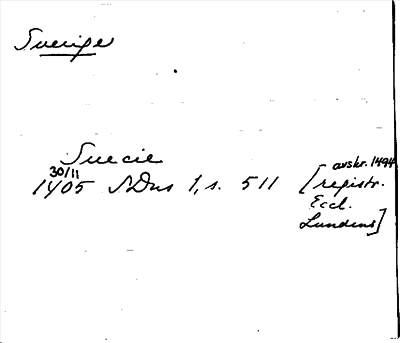 Sverige
Suecie
30/11 avskr. 1494
1405 SDns 1, s. 511 [registr.
Eccl.
Lundens]